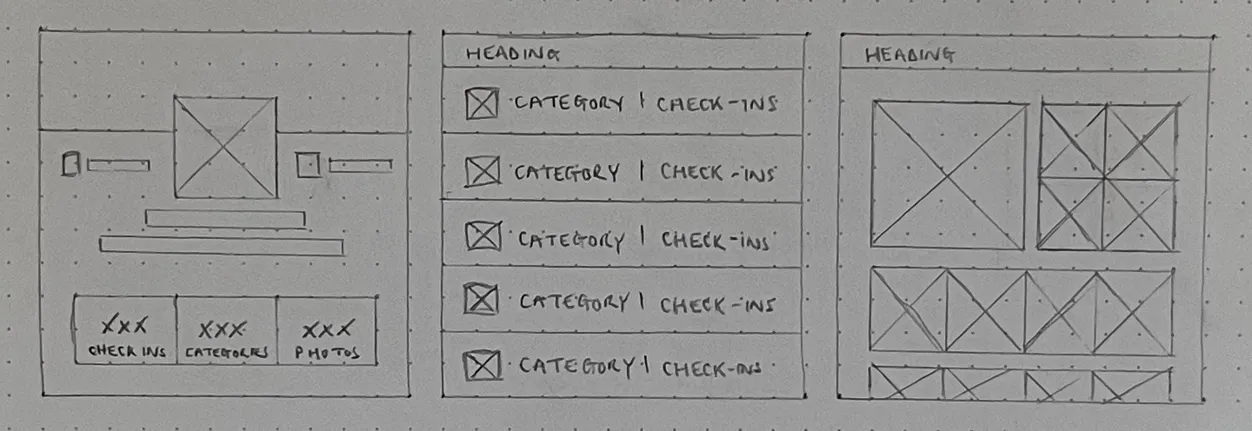 XXX XXX XXX
CHECK INS CATEGORIES PHOTOS
HEADING
CATEGORY | CHECK-INS
CATEGORY | CHECK-INS
CATEGORY | CHECK-INS
CATEGORY | CHECK-INS
CATEGORY | CHECK-INS
HEADING